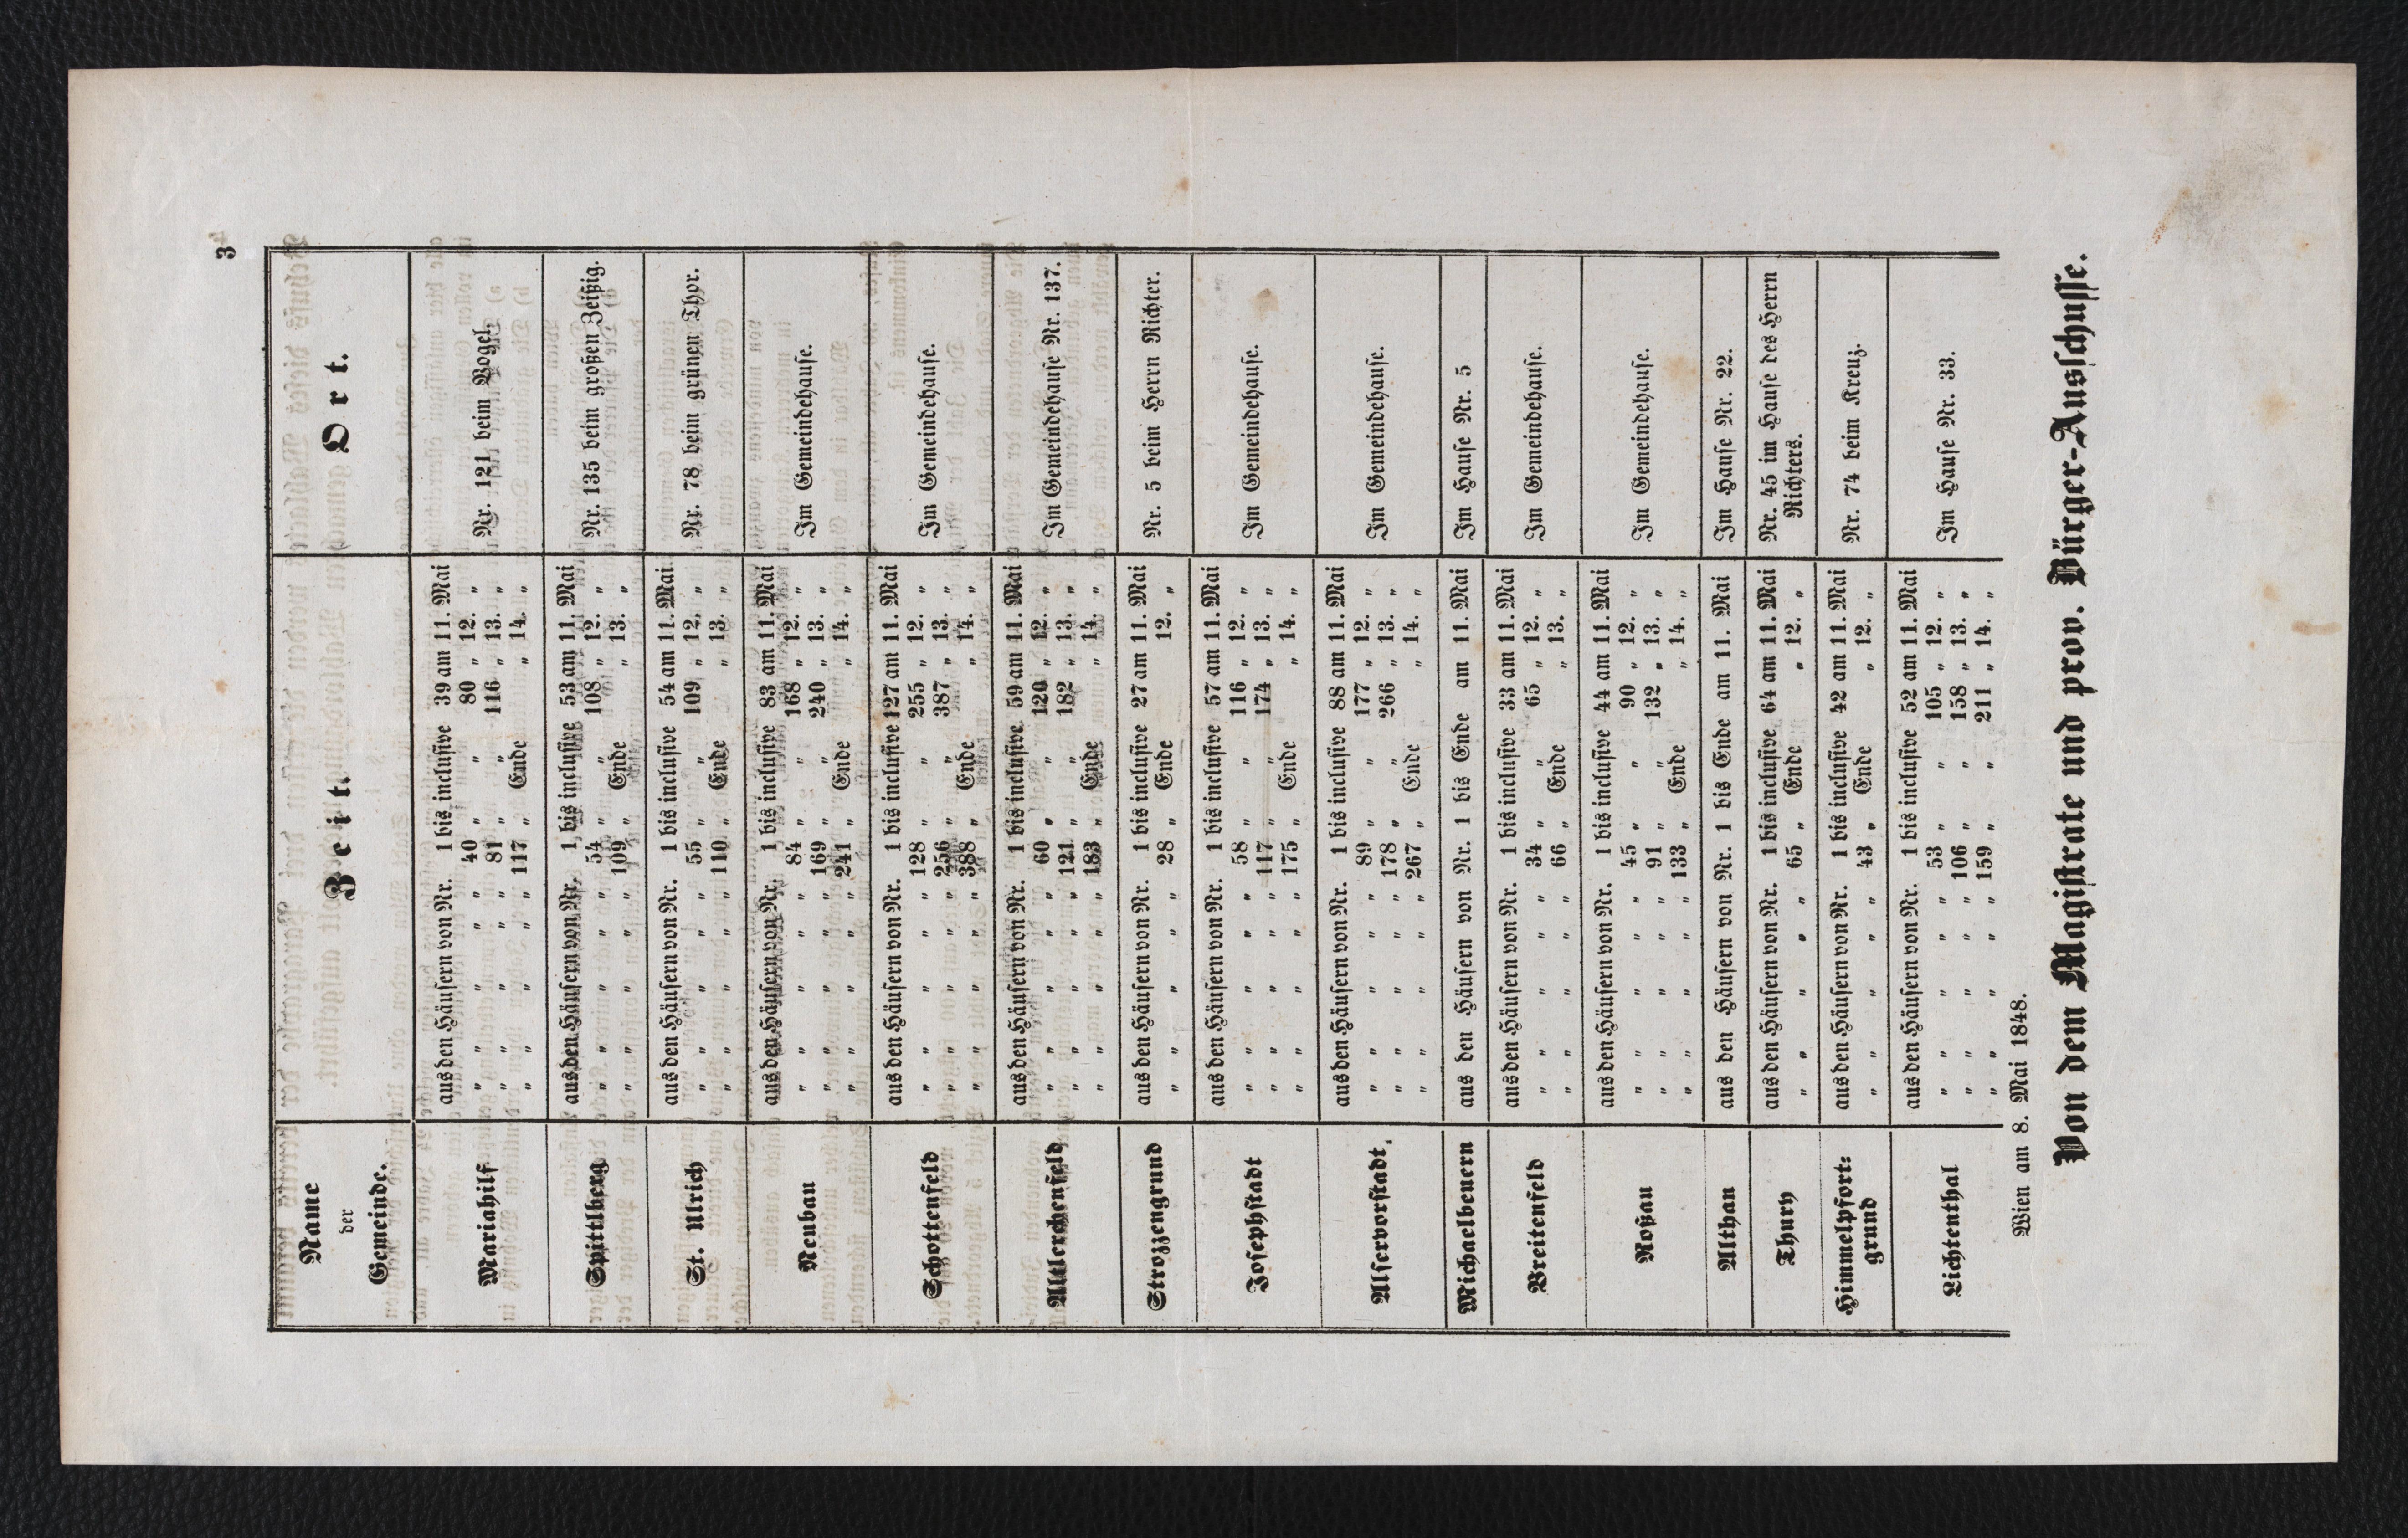 3
Name
der
Gemeinde.
Zeit.
Ort.
Mariahilf
aus den Häusern von Nr. 1 bis inclusive 39 am 11. Mai
" " " " 40 " " 80 " 12. "
" " " " 81 " " 116 " 13. "
" " " " 117 " Ende " 14. "
Nr. 121 beim Vogel.
Spittlberg
aus den Häusern von Nr. 1 bis inclusive 53 am 11. Mai
" " " " 54 " " 108 " 12. "
" " " " 109 " Ende " 13. "
Nr. 135 beim großen Zeißig.
St. Ulrich
aus den Häusern von Nr. 1 bis inclusive 54 am 11. Mai
" " " " 55 " " 109 " 12. "
" " " " 110 " Ende " 13. "
Nr. 78 beim grünen Thor.
Neubau
aus den Häusern von Nr. 1 bis inclusive 83 am 11. Mai
" " " " 84 " " 168 " 12. "
" " " " 169 " " 240 " 13. "
" " " " 241 " Ende " 14. "
Im Gemeindehause.
Schottenfeld
aus den Häusern von Nr. 1 bis inclusive 127 am 11. Mai
" " " " 128 " " 255 " 12. "
" " " " 256 " " 387 " 13. "
" " " " 388 " Ende " 14. "
Im Gemeindehause.
Altlerchenfeld
aus den Häusern von Nr. 1 bis inclusive 59 am 11. Mai
" " " " 60 " " 120 " 12. "
" " " " 121 " " 182 " 13. "
" " " " 183 " Ende " 14. "
Im Gemeindehause Nr. 137.
Strozzengrund
aus den Häusern von Nr. 1 bis inclusive 27 am 11. Mai
" " " " 28 " Ende 12. "
Nr. 5 beim Herrn Richter.
Josephstadt
aus den Häusern von Nr. 1 bis inclusive 57 am 11. Mai
" " " " 58 " " 116 " 12. "
" " " " 117 " " 174 " 13. "
" " " " 175 " Ende " 14. "
Im Gemeindehause.
Alservorstadt.
aus den Häusern von Nr. 1 bis inclusive 88 am 11. Mai
" " " " 89 " " 177 " 12. "
" " " " 178 " " 266 " 13. "
" " " " 267 " Ende " 14. "
Im Gemeindehause.
Michaelbenern
aus den Häusern von Nr. 1 bis Ende am 11. Mai
Im Hause Nr. 5
Breitenfeld
aus den Häusern von Nr. 1 bis inclusive 33 am 11. Mai
" " " " 34 " " 65 " 12. "
" " " " 66 " Ende " 13. "
Im Gemeindehause.
Roßau
aus den Häusern von Nr. 1 bis inclusive 44 am 11. Mai
" " " " 45 " " 90 " 12. "
" " " " 91 " " 132 " 13. "
" " " " 133 " Ende " 14. "
Im Gemeindehause.
Althan
aus den Häusern von Nr. 1 bis Ende am 11. Mai
Im Hause Nr. 22.
Thury
aus den Häusern von Nr. 1 bis inclusive 64 am 11. Mai
" " " " 65 " Ende " 12. "
Nr. 45 im Hause des Herrn
Richters.
Himmelpfort-
grund
aus den Häusern von Nr. 1 bis inclusive 42 am 11. Mai
" " " " 43 " Ende " 12. "
Nr. 74 beim Kreuz.
Lichtenthal
aus den Häusern von Nr. 1 bis inclusive 52 am 11. Mai
" " " " 53 " " 105 " 12. "
" " " " 106 " " 158 " 13. "
" " " " 159 " " 211 " 14. "
Im Hause Nr. 33.
Wien am 8. Mai 1848.
Von dem Magistrate und prov. Bürger-Ausschusse.